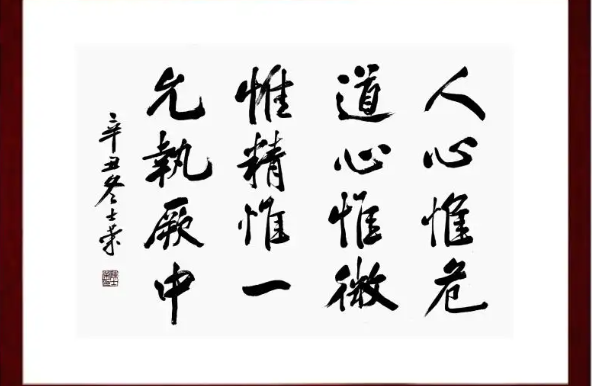 人心惟危
道心惟微
惟精惟一
允執厥中
辛丑冬士榮